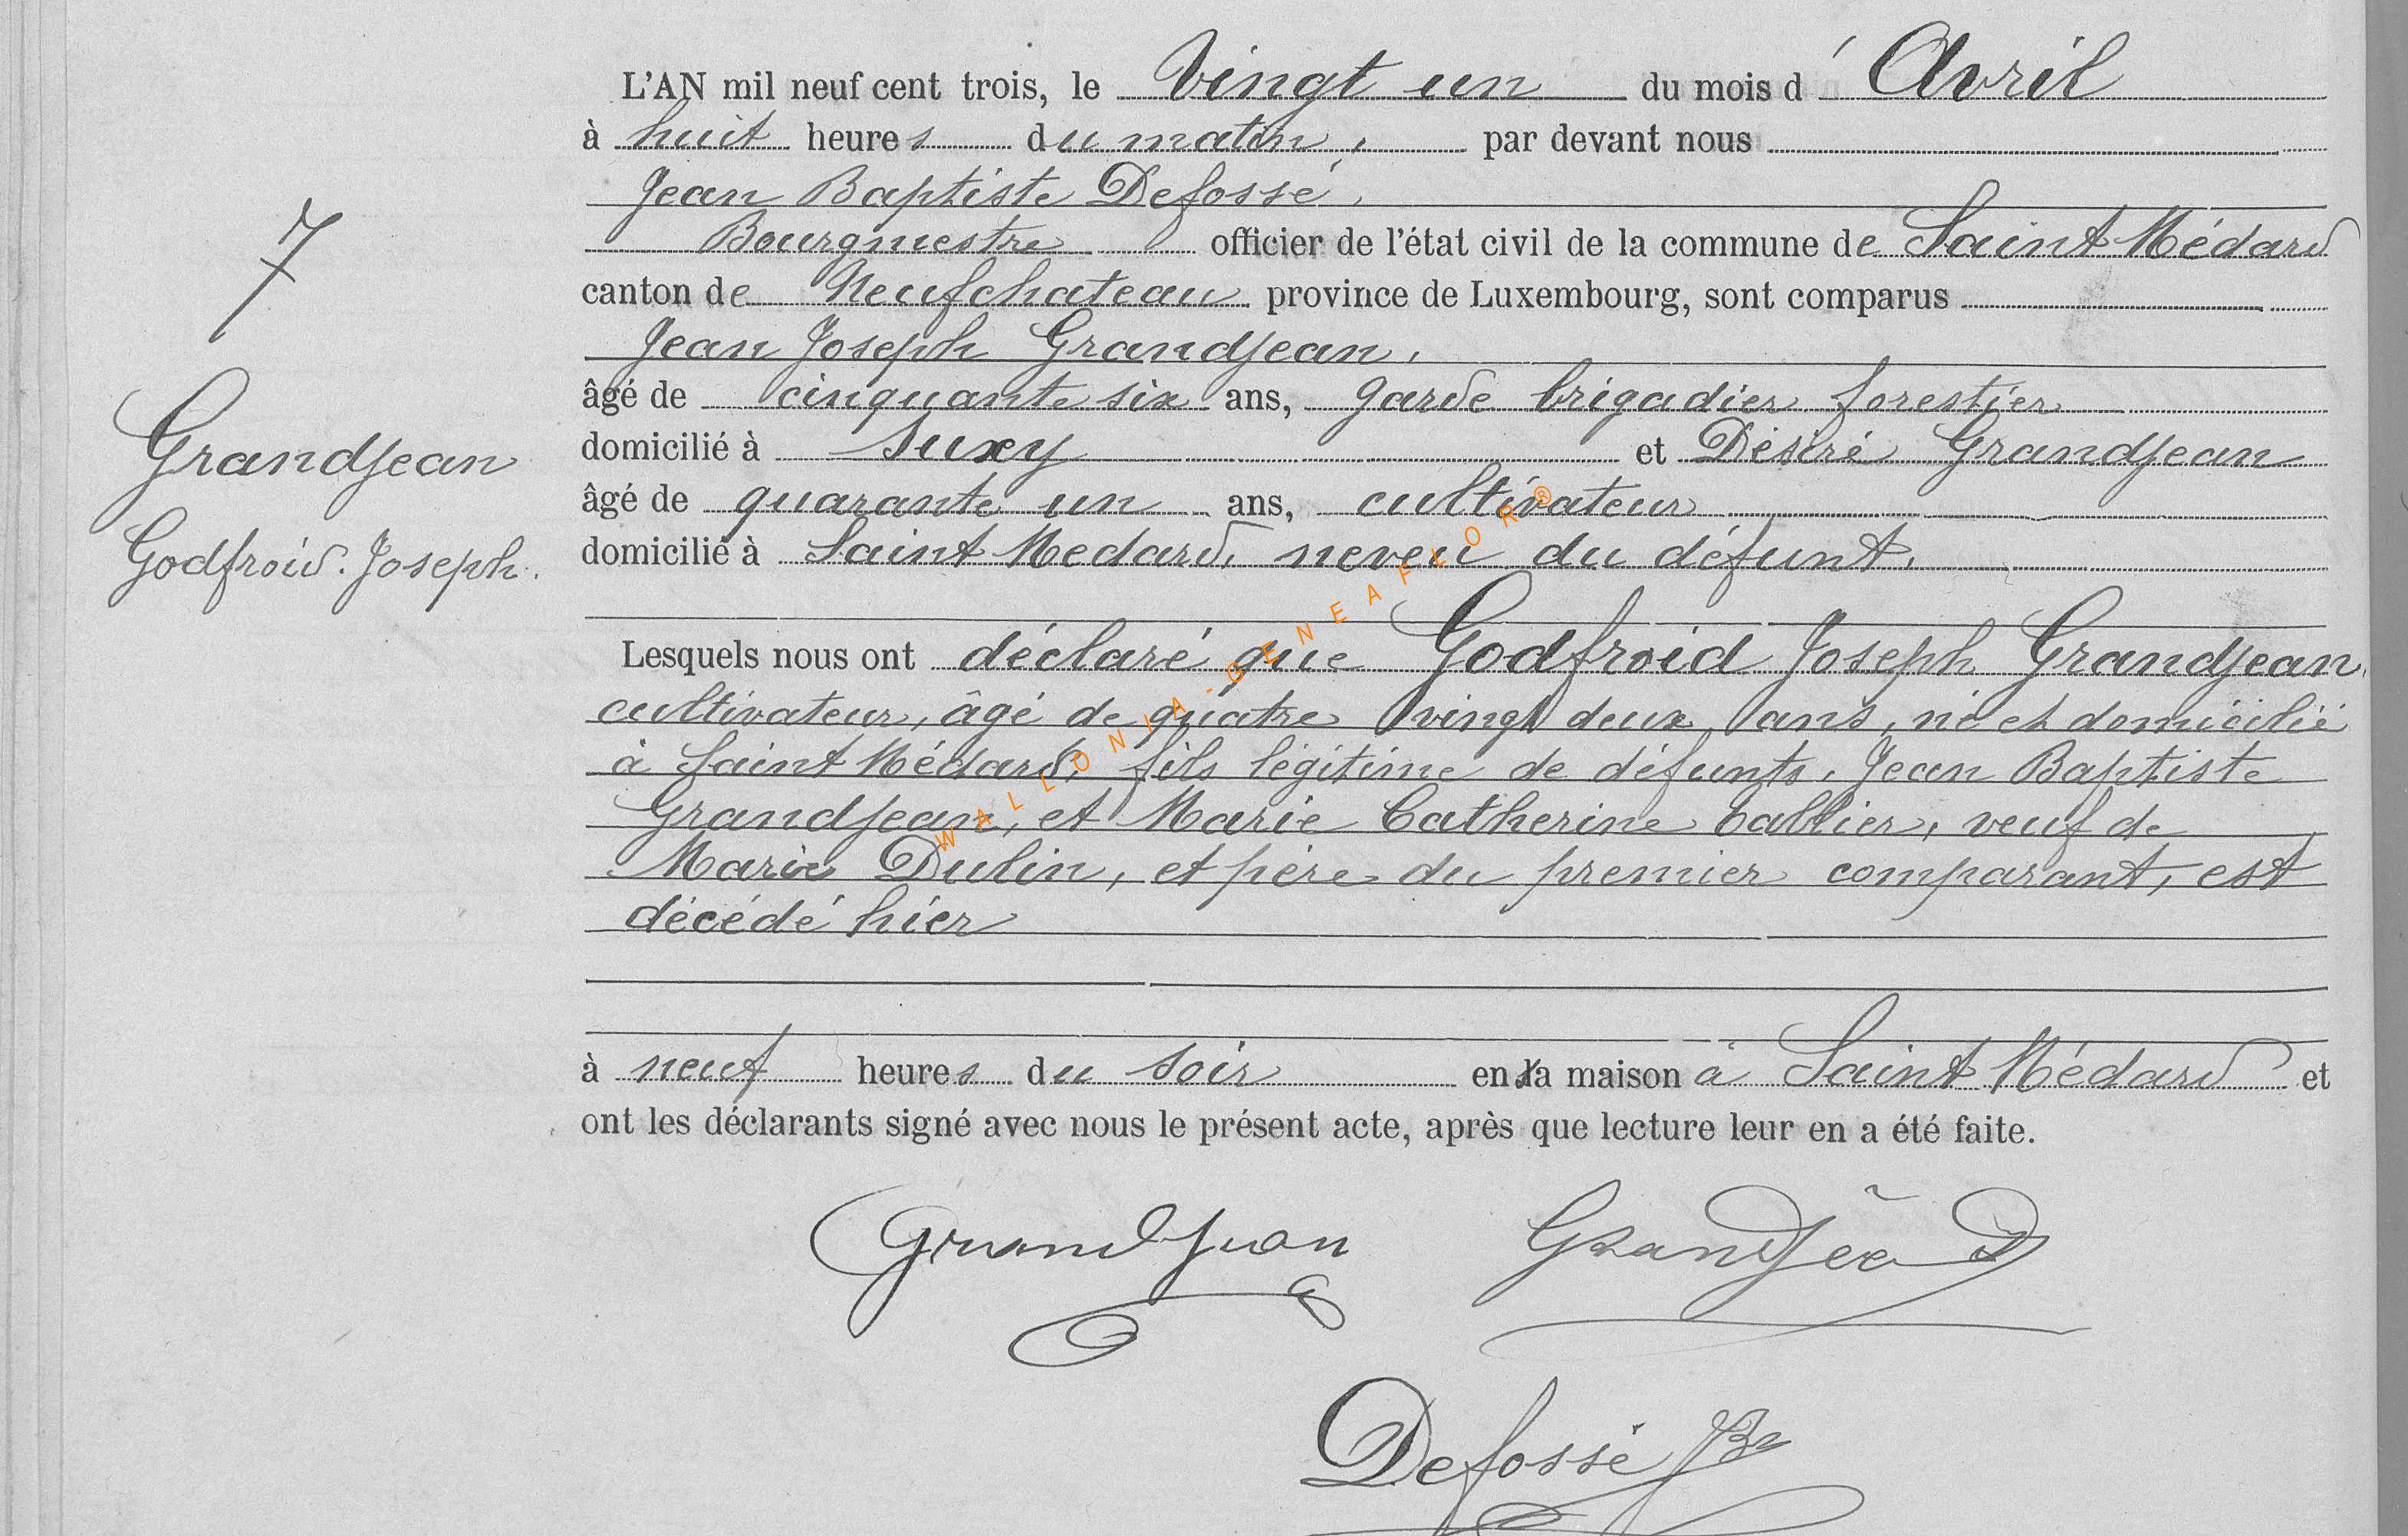 L'AN mil neuf cent trois, le Vingt un du mois d'Avril
à huit heures du matin, par devant nous
Jean Baptiste Defossé,
Bourgmestre officier de l'état civil de la commune de Saint Médard
7
canton de Neufchateau province de Luxembourg, sont comparus
Jean Joseph Grandjean,
âgé de cinquante six ans, garde brigadier forestier
Grandjean
domicilié à Suxy et Désiré Grandjean
âgé de quarante un ans, cultivateur
Godfroid. Joseph.
domicilié à Saint Medard, neveu du défunt,
Lesquels nous ont déclaré que Godfroid Joseph Grandjean,
cultivateur, âgé de quatre vingt deux ans, né et domicilié
à Saint Médard, fils légitime de défunts, Jean Baptiste
Grandjean, et Marie Catherine Callier, veuf de
Marie Dulin, et père du premier comparant, est
décédé hier
à neuf heures du soir en sa maison à Saint Médard et
ont les déclarants signé avec nous le présent acte, après que lecture leur en a été faite.
Grandjean Grandjea D
Defossé JB
WALLONIA-GENEAFLOR®